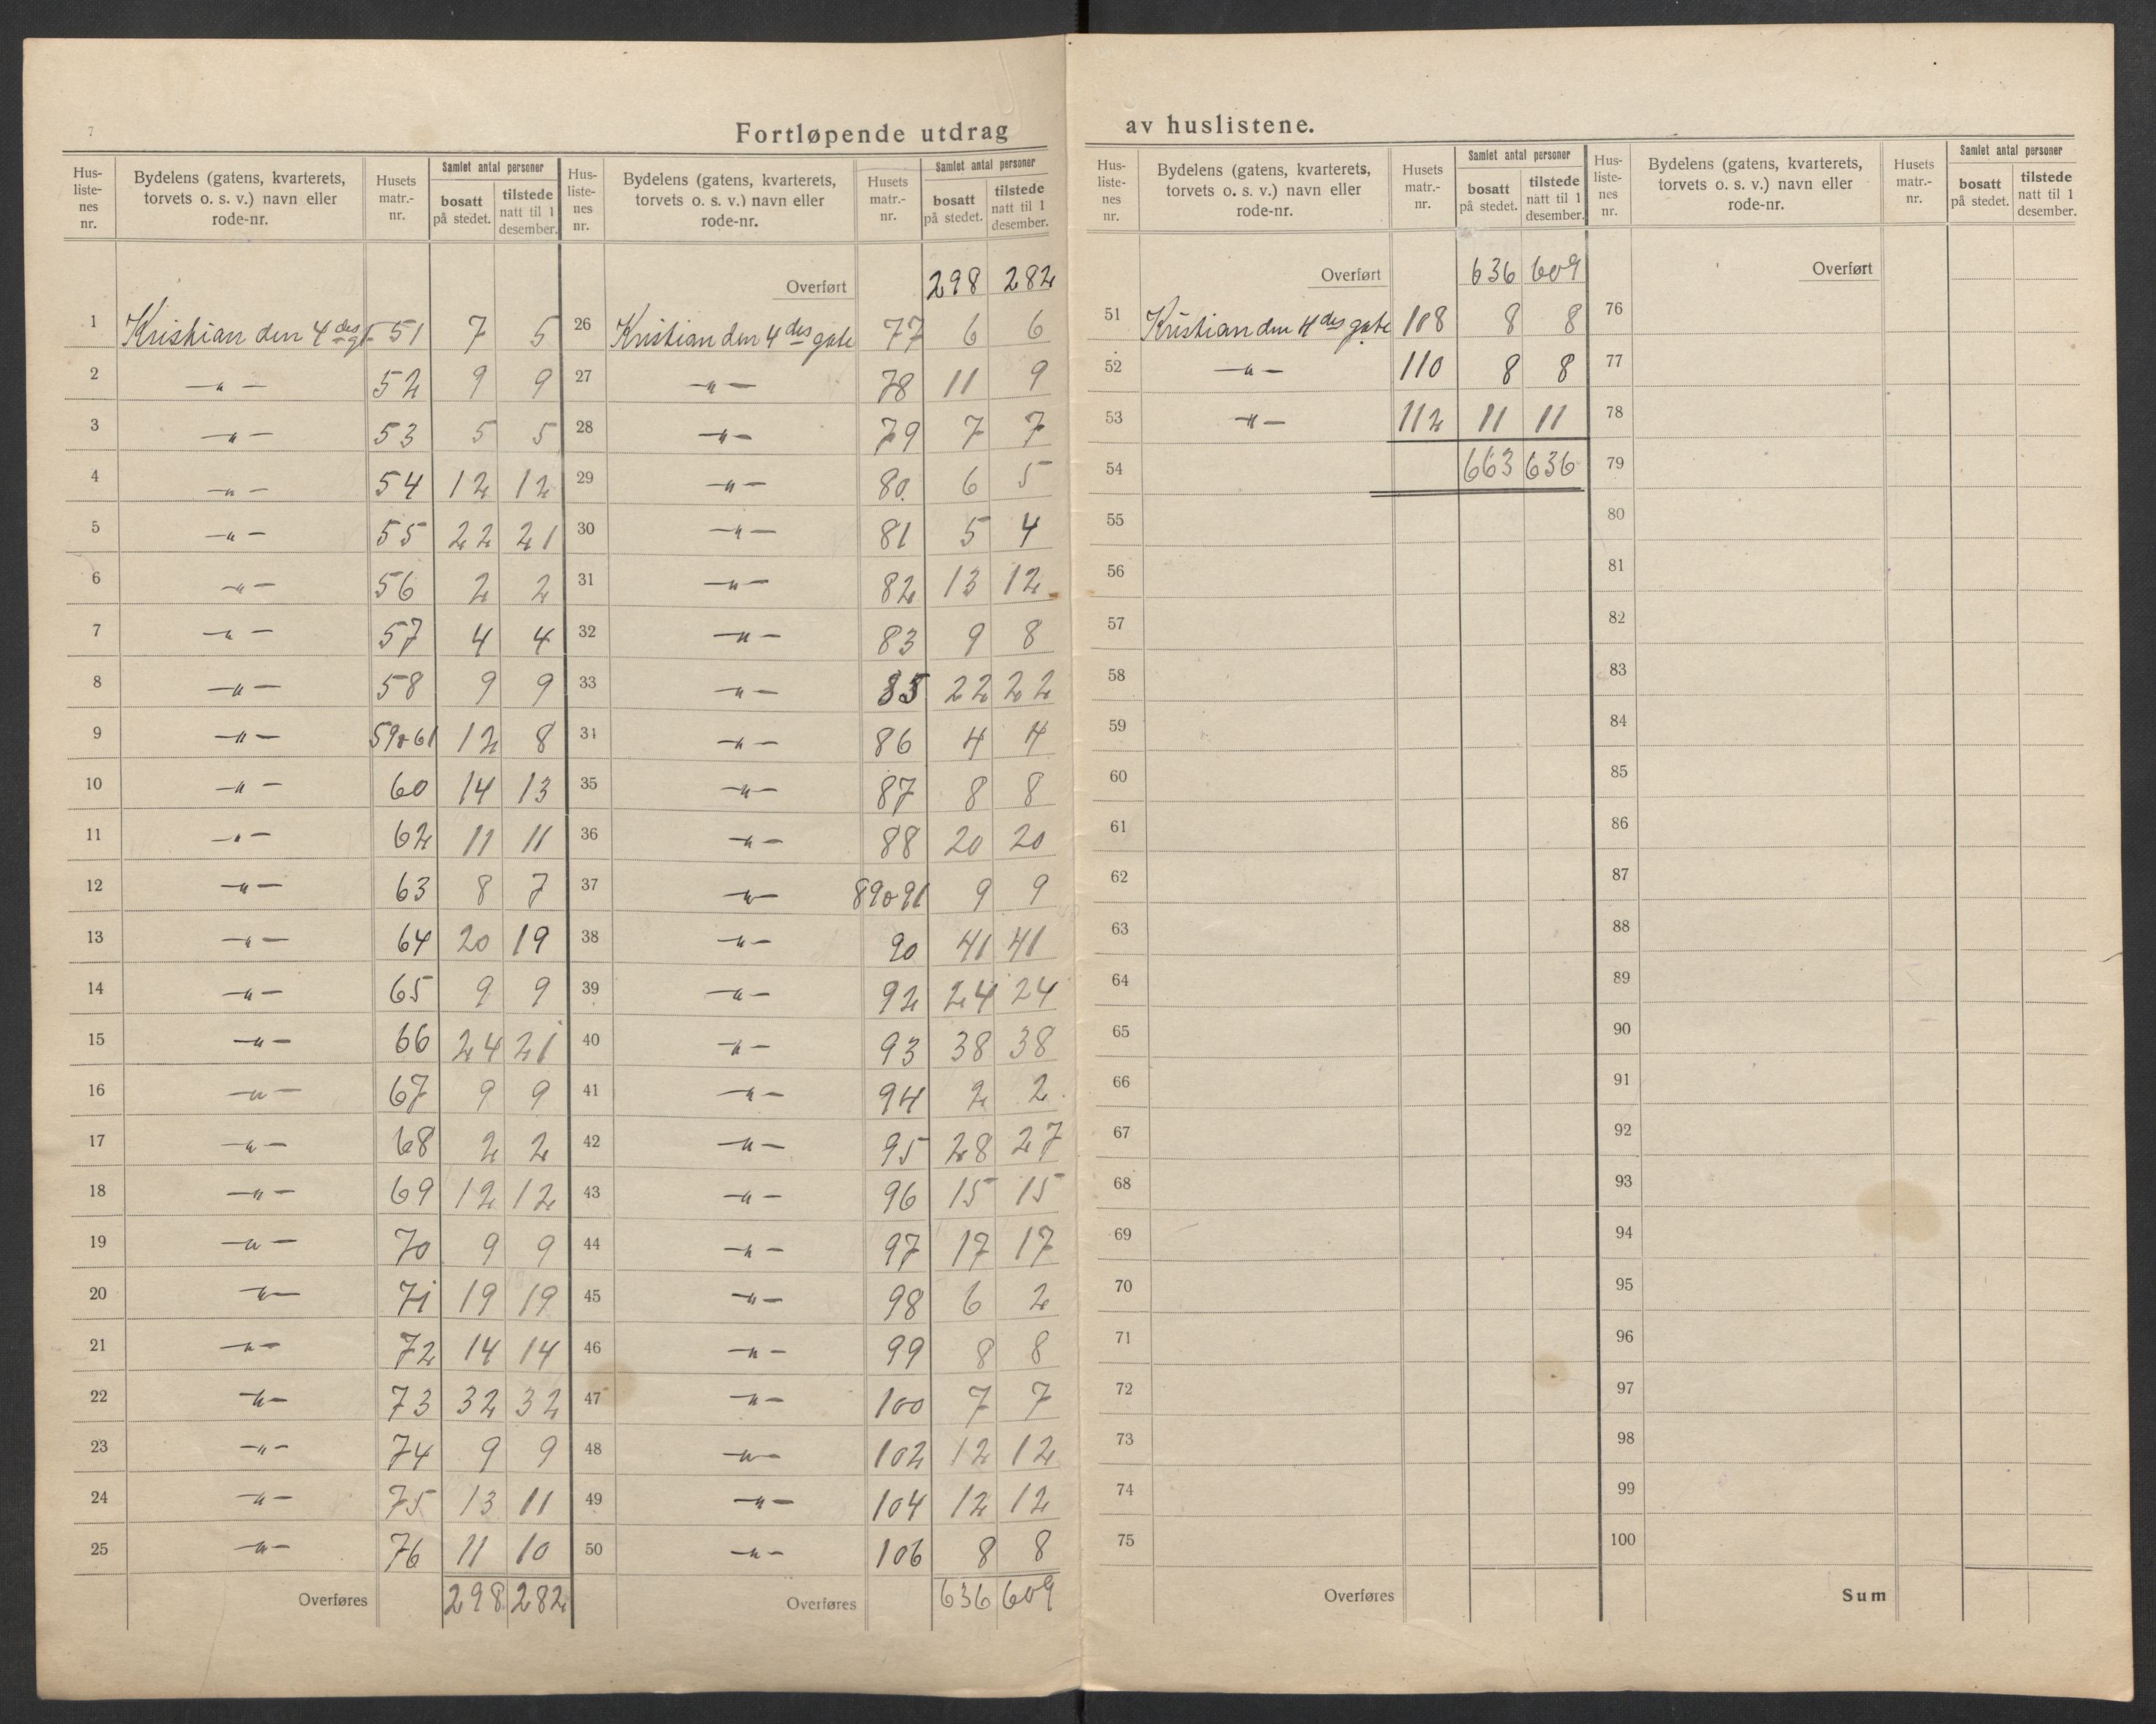 7
Fortløpende utdrag av huslistene.
Hus-liste-nes nr. Bydelens (gatens, kvarterets, torvets o. s. v.) navn eller rode-nr. Husets matr.-nr. Samlet antal personer bosatt på stedet. tilstede natt til 1 desember.
1 Kristian den 4des gt 51 7 5
2 —„— 52 9 9
3 —„— 53 5 5
4 —„— 54 12 12
5 —„— 55 22 21
6 —„— 56 2 2
7 —„— 57 4 4
8 —„— 58 9 9
9 —„— 59 o 61 12 8
10 —„— 60 14 13
11 —„— 62 11 11
12 —„— 63 8 7
13 —„— 64 20 19
14 —„— 65 9 9
15 —„— 66 24 21
16 —„— 67 9 9
17 —„— 68 2 2
18 —„— 69 12 12
19 —„— 70 9 9
20 —„— 71 19 19
21 —„— 72 14 14
22 —„— 73 32 32
23 —„— 74 9 9
24 —„— 75 13 11
25 —„— 76 11 10
Overføres 298 282
Hus-liste-nes nr. Bydelens (gatens, kvarterets, torvets o. s. v.) navn eller rode-nr. Husets matr.-nr. Samlet antal personer bosatt på stedet. tilstede natt til 1 desember.
Overført 298 282
26 Kristian den 4des gate 77 6 6
27 —„— 78 11 9
28 —„— 79 7 7
29 —„— 80 6 5
30 —„— 81 5 4
31 —„— 82 13 12
32 —„— 83 9 8
33 —„— 85 22 22
34 —„— 86 4 4
35 —„— 87 8 8
36 —„— 88 20 20
37 —„— 89 o 91 9 9
38 —„— 90 41 41
39 —„— 92 24 24
40 —„— 93 38 38
41 —„— 94 2 2
42 —„— 95 28 27
43 —„— 96 15 15
44 —„— 97 17 17
45 —„— 98 6 2
46 —„— 99 8 8
47 —„— 100 7 7
48 —„— 102 12 12
49 —„— 104 12 12
50 —„— 106 8 8
Overføres 636 609
Hus-liste-nes nr. Bydelens (gatens, kvarterets, torvets o. s. v.) navn eller rode-nr. Husets matr.-nr. Samlet antal personer bosatt på stedet. tilstede natt til 1 desember.
Overført 636 609
51 Kristian den 4des gate 108 8 8
52 —„— 110 8 8
53 —„— 112 11 11
54 663 636
55
56
57
58
59
60
61
62
63
64
65
66
67
68
69
70
71
72
73
74
75
Overføres
Hus-liste-nes nr. Bydelens (gatens, kvarterets, torvets o. s. v.) navn eller rode-nr. Husets matr.-nr. Samlet antal personer bosatt på stedet. tilstede natt til 1 desember.
Overført
76
77
78
79
80
81
82
83
84
85
86
87
88
89
90
91
92
93
94
95
96
97
98
99
100
Sum